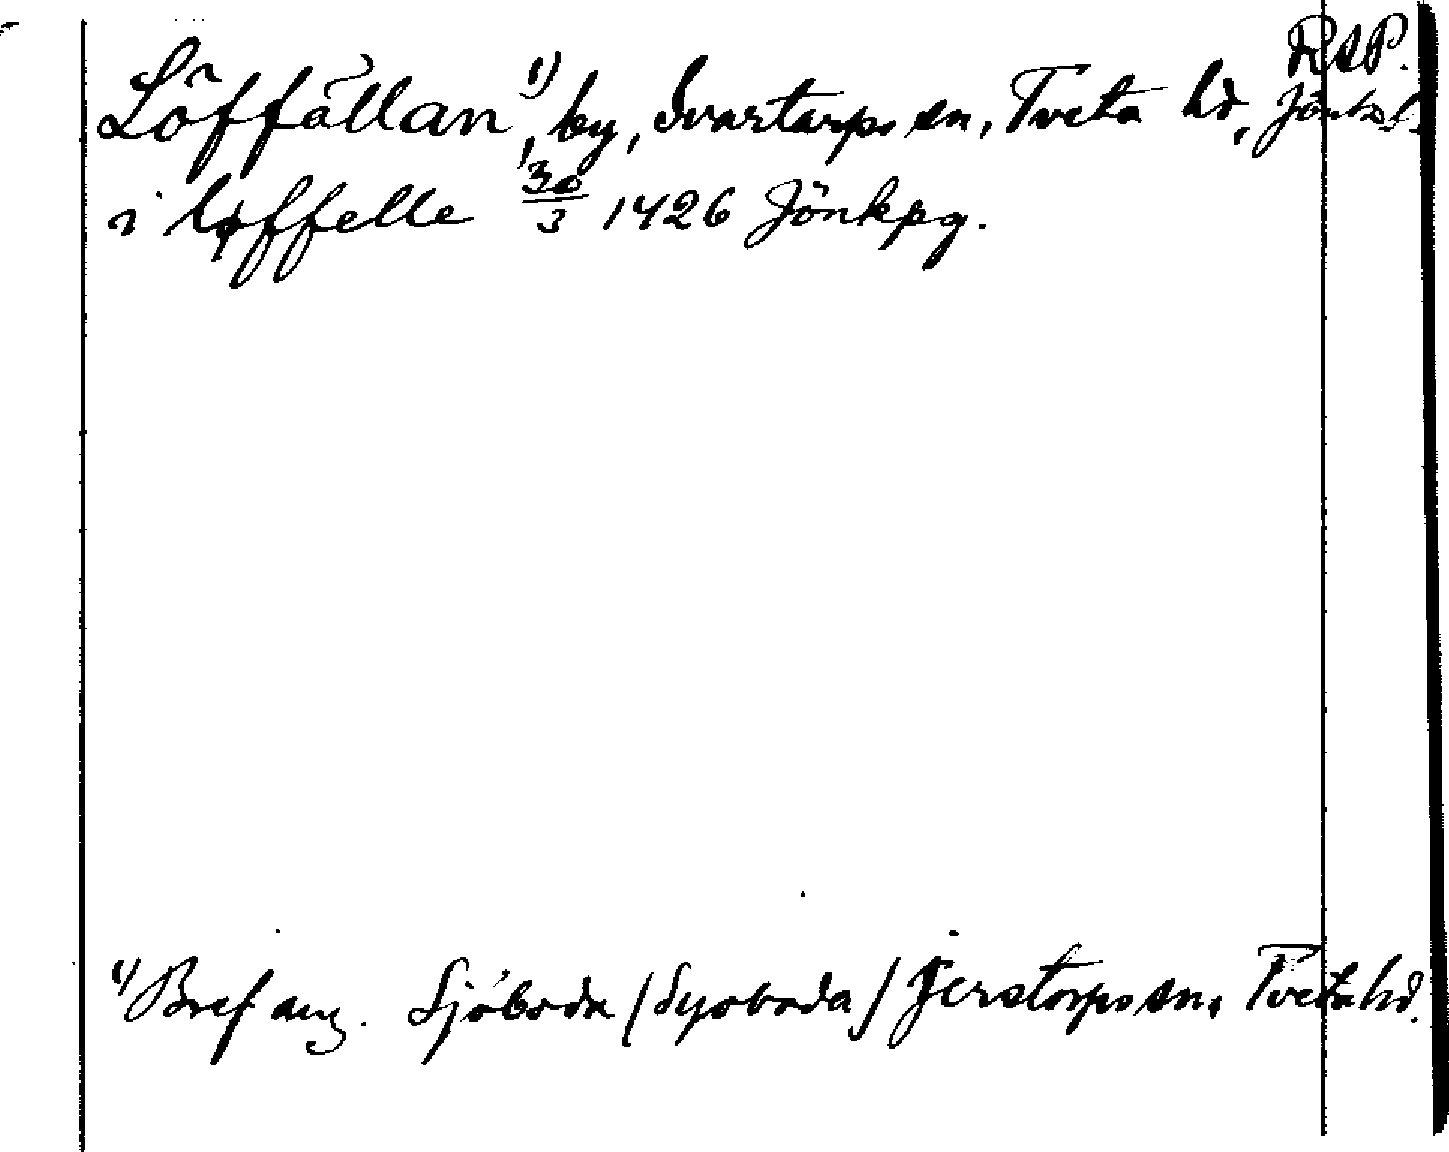 RAP.
Löffällan ¹⁾, by, Svartarps sn, Tveta hd, Jönk. l.
i løffelle 30/3 1426 Jönkpg.
¹⁾ Bref ang. Sjöboda (Syoboda) Jerstorps sn, Tveta hd.